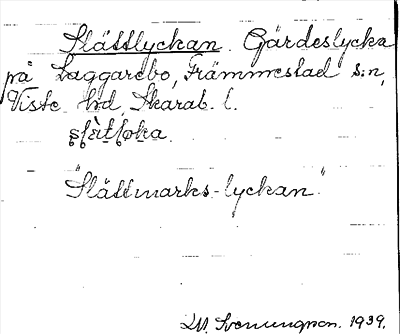 Slättlyckan. Gärdeslycka
på Laggarebo, Främmestad s:n,
Viste hd, Skarab. l.
"Slättmarks-lyckan."
M. Svenungson. 1939.